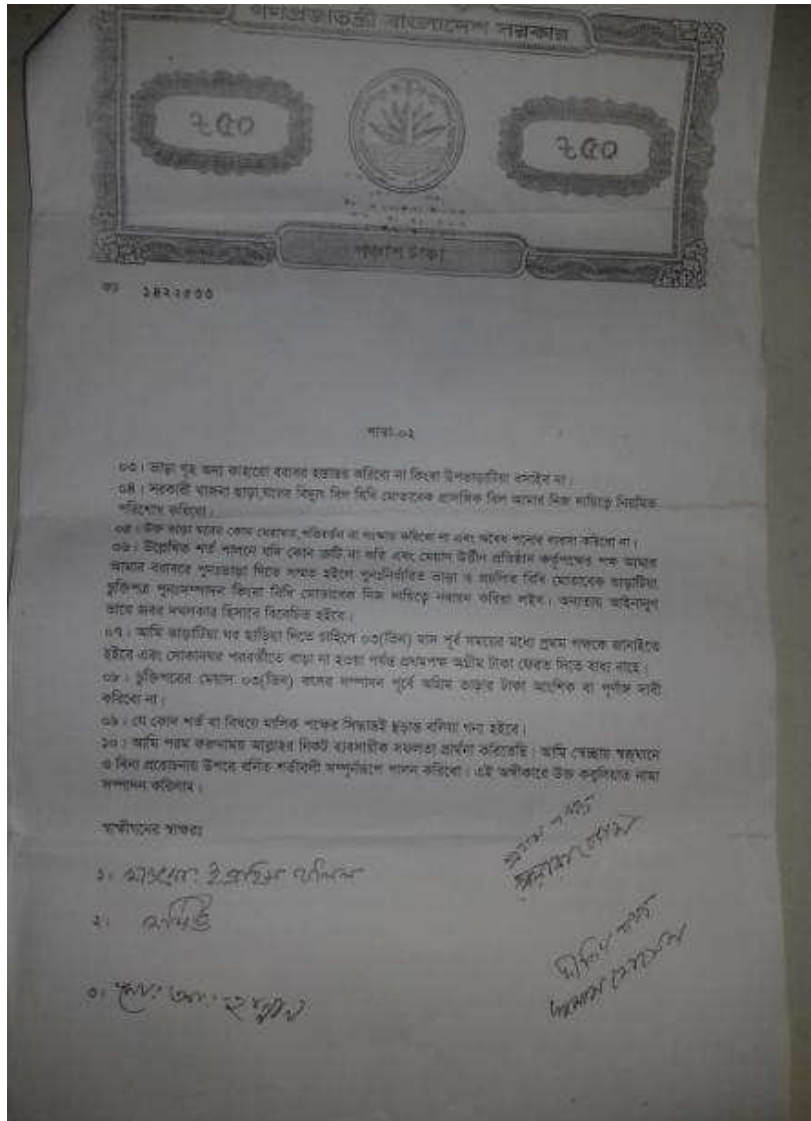 গণপ্রজাতন্ত্রী বাংলাদেশ সরকার
৳৫০
৳৫০
পঞ্চাশ টাকা
কচ ১৪২২৫৩৩
পাতা-০২
০৩। ভাড়া গৃহ অন্য কাহারো বরাবর হস্তান্তর করিবো না কিংবা উপভাড়াটিয়া বসাইব না।
০৪। সরকারী খাজনা ছাড়া,ঘরের বিদ্যুৎ বিল বিধি মোতাবেক প্রাসঙ্গিক বিল আমার নিজ দায়িত্বে নিয়মিত
পরিশোধ করিবো।
০৫। উক্ত ভাড়া ঘরের কোন মেরামত,পরিবর্তন বা সংস্কার করিবো না এবং অবৈধ পন্যের ব্যবসা করিবো না।
০৬। উল্লেখিত শর্ত পালনে যদি কোন ত্রুটি না করি এবং মেয়াদ উর্ত্তীণ প্রতিষ্ঠান কর্তৃপক্ষের পক্ষ আমার
আমার বরাবরে পুনঃভাড়া দিতে সম্মত হইলে পুনঃনির্ধারিত ভাড়া ও প্রচলিত বিধি মোতাবেক ভাড়াটিয়া
চুক্তিপত্র পুনঃসম্পাদন কিংবা বিধি মোতাবেক নিজ দায়িত্বে নবায়ন করিয়া লইব। অন্যতায় আইনানুগ
ভাবে জবর দখলকার হিসাবে বিবেচিত হইবে।
০৭। আমি ভাড়াটিয়া ঘর ছাড়িয়া দিতে চাহিলে ০৩(তিন) মাস পূর্ব সময়ের মধ্যে প্রথম পক্ষকে জানাইতে
হইবে এবং দোকানঘর পরবর্তীতে ভাড়া না হওয়া পর্যন্ত প্রথমপক্ষ অগ্রীম টাকা ফেরত দিতে বাধ্য নহে।
০৮। চুক্তিপত্রের মেয়াদ ০৩(তিন) বৎসর সম্পাদন পূর্বে অগ্রিম ভাড়ার টাকা আংশিক বা পূর্ণাঙ্গ দাবী
করিবো না।
০৯। যে কোন শর্ত বা বিষয়ে মালিক পক্ষের সিদ্ধান্তই চুড়ান্ত বলিয়া গন্য হইবে।
১০। আমি পরম করুনাময় আল্লাহর নিকট ব্যবসায়ীক সফলতা প্রার্থনা করিতেছি। আমি স্বেচ্ছায় স্বজ্ঞানে
ও বিনা প্ররোচনায় উপরে বর্নিত শর্তাবলী সম্পূর্নরূপে পালন করিবো। এই অঙ্গীকারে উক্ত কবুলিয়াত নামা
সম্পাদন করিলাম।
স্বাক্ষীগনের স্বাক্ষরঃ
প্রথম পক্ষ
১।
২।
দ্বিতীয় পক্ষ
৩।